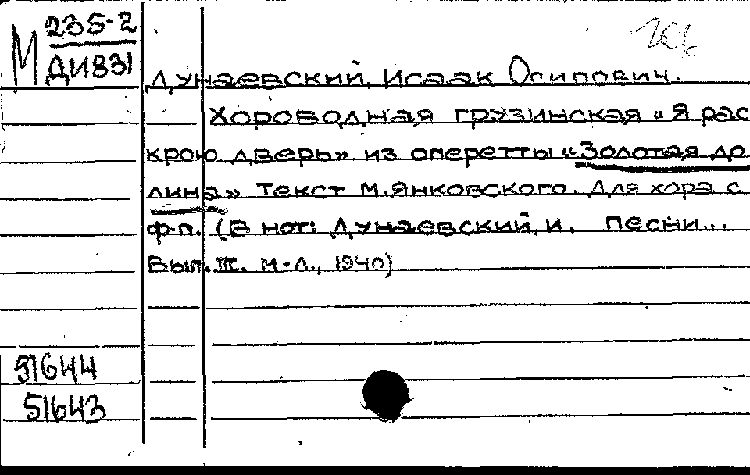 М 235-2
ДИ831
Дунаевский, Исаак Осипович.
Хороводная грузинская „Я рас
крою дверь" из оперетты „Золотая до
лина" Текст М.Янковского. Для хора с
ф-п. (В нот: Дунаевский, И. Песни...
Вып. III. М-Л., 1940)
51644
51643